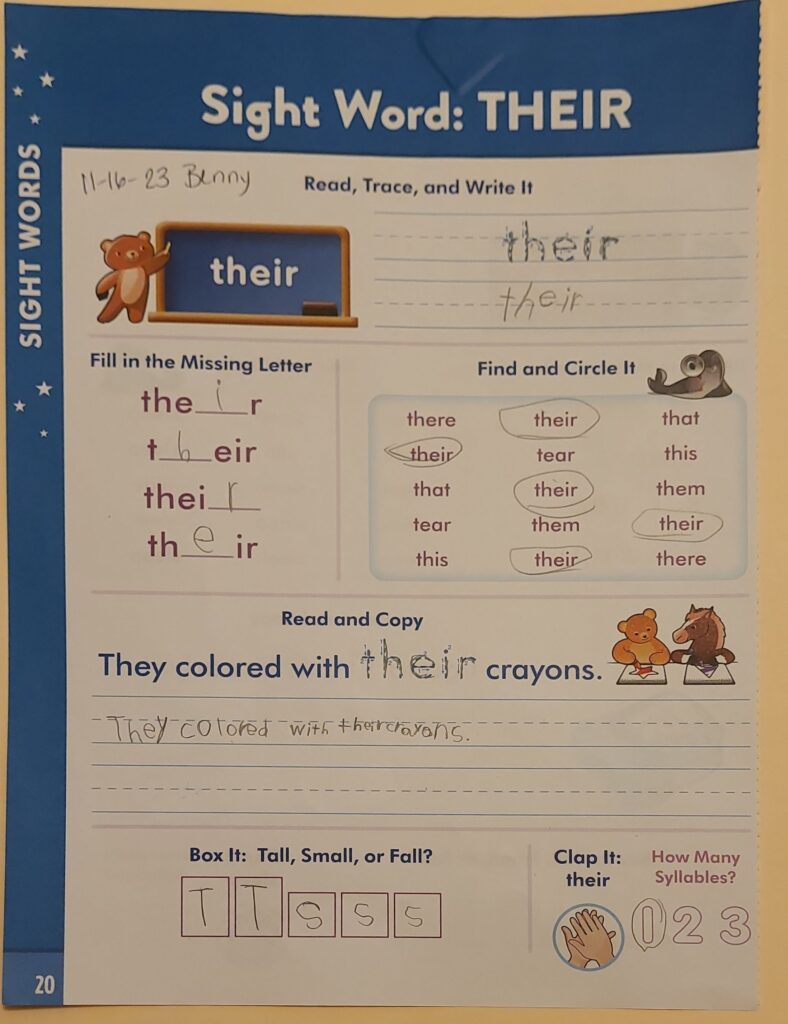 Sight Word: THEIR
SIGHT WORDS
11-16-23 Benny
Read, Trace, and Write It
their
their
their
Fill in the Missing Letter
the i r
t h eir
thei r
th e ir
Find and Circle It
there their that
their tear this
that their them
tear them their
this their there
Read and Copy
They colored with their crayons.
They colored with their crayons.
Box It: Tall, Small, or Fall?
T T S S S
Clap It:
their
How Many
Syllables?
1 2 3
20